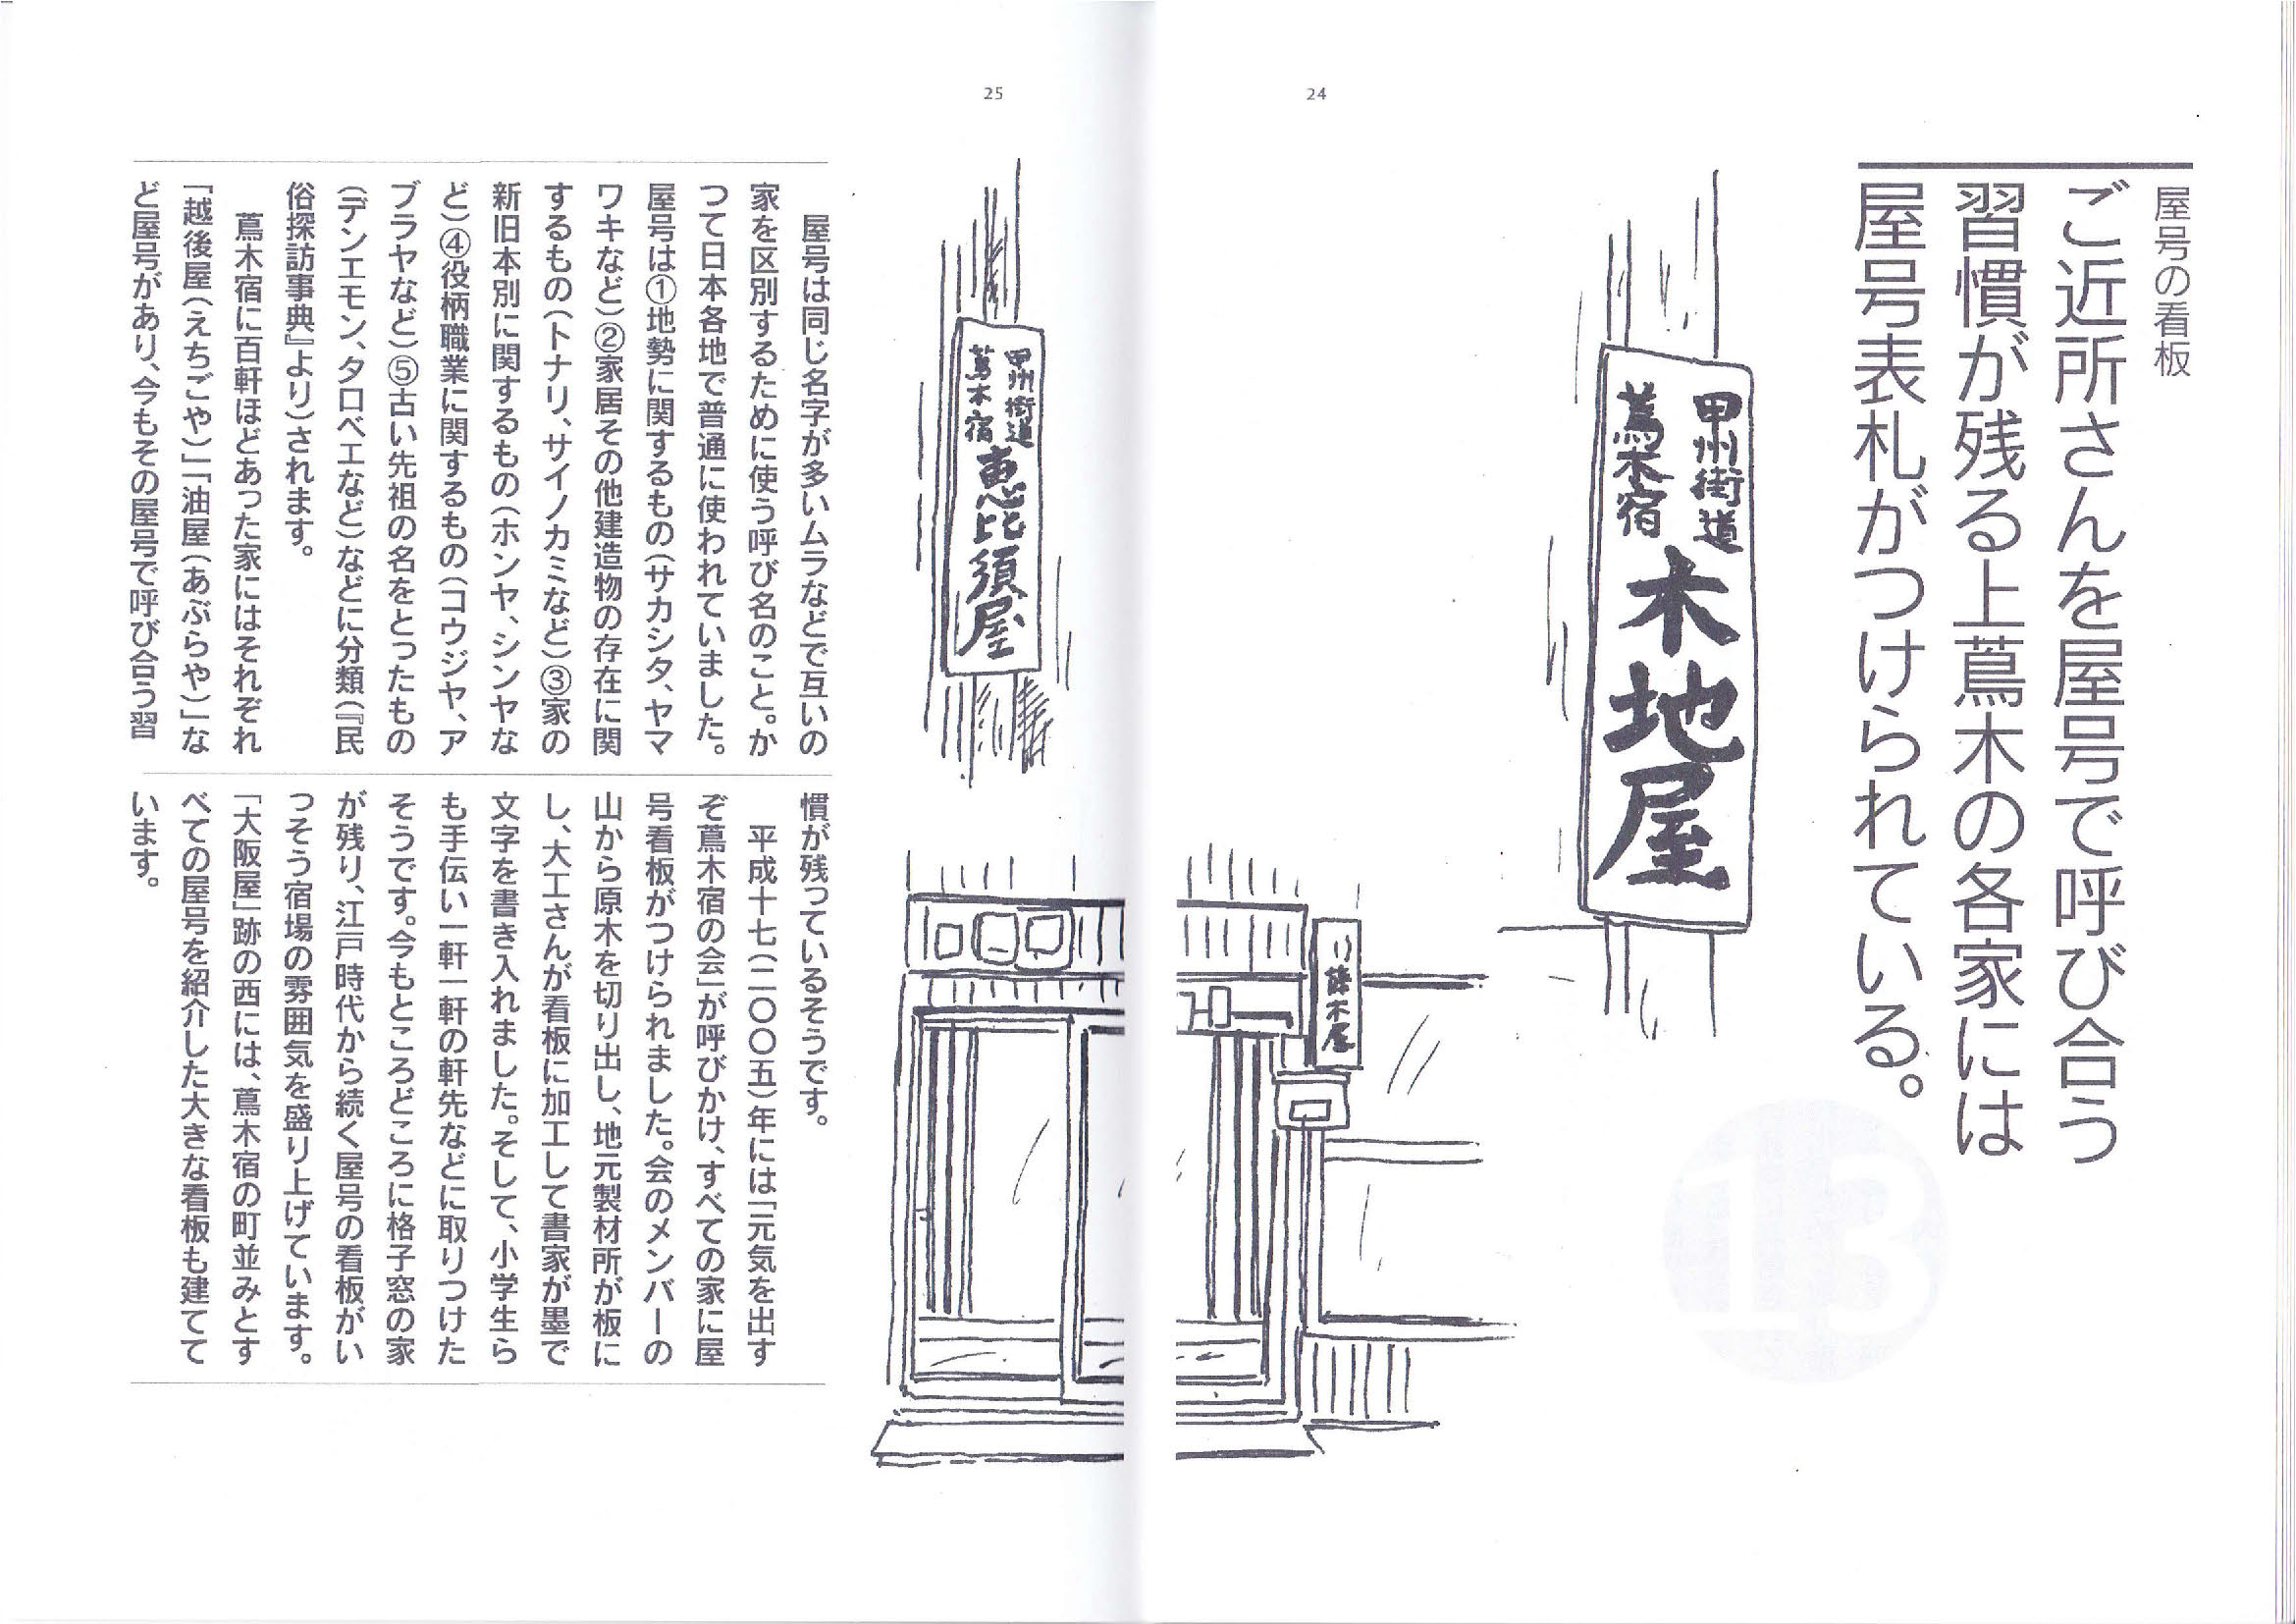 24
屋号の看板
ご近所さんを屋号で呼び合う
習慣が残る上蔦木の各家には
屋号表札がつけられている。
13
甲州街道
蔦木宿
木地屋
藤木屋
25
甲州街道
蔦木宿
恵比須屋
屋号は同じ名字が多いムラなどで互いの
家を区別するために使う呼び名のこと。か
つて日本各地で普通に使われていました。
屋号は①地勢に関するもの(サカシタ、ヤマ
ワキなど)②家居その他建造物の存在に関
するもの(トナリ、サイノカミなど)③家の
新旧本別に関するもの(ホンヤ、シンヤな
ど)④役柄職業に関するもの(コウジヤ、ア
ブラヤなど)⑤古い先祖の名をとったもの
(デンエモン、タロベエなど)などに分類(『民
俗探訪事典』より)されます。
蔦木宿に百軒ほどあった家にはそれぞれ
「越後屋(えちごや)」「油屋(あぶらや)」な
ど屋号があり、今もその屋号で呼び合う習
慣が残っているそうです。
平成十七(二〇〇五)年には「元気を出す
ぞ蔦木宿の会」が呼びかけ、すべての家に屋
号看板がつけられました。会のメンバーの
山から原木を切り出し、地元製材所が板に
し、大工さんが看板に加工して書家が墨で
文字を書き入れました。そして、小学生ら
も手伝い一軒一軒の軒先などに取りつけた
そうです。今もところどころに格子窓の家
が残り、江戸時代から続く屋号の看板がい
っそう宿場の雰囲気を盛り上げています。
「大阪屋」跡の西には、蔦木宿の町並みとす
べての屋号を紹介した大きな看板も建てて
います。